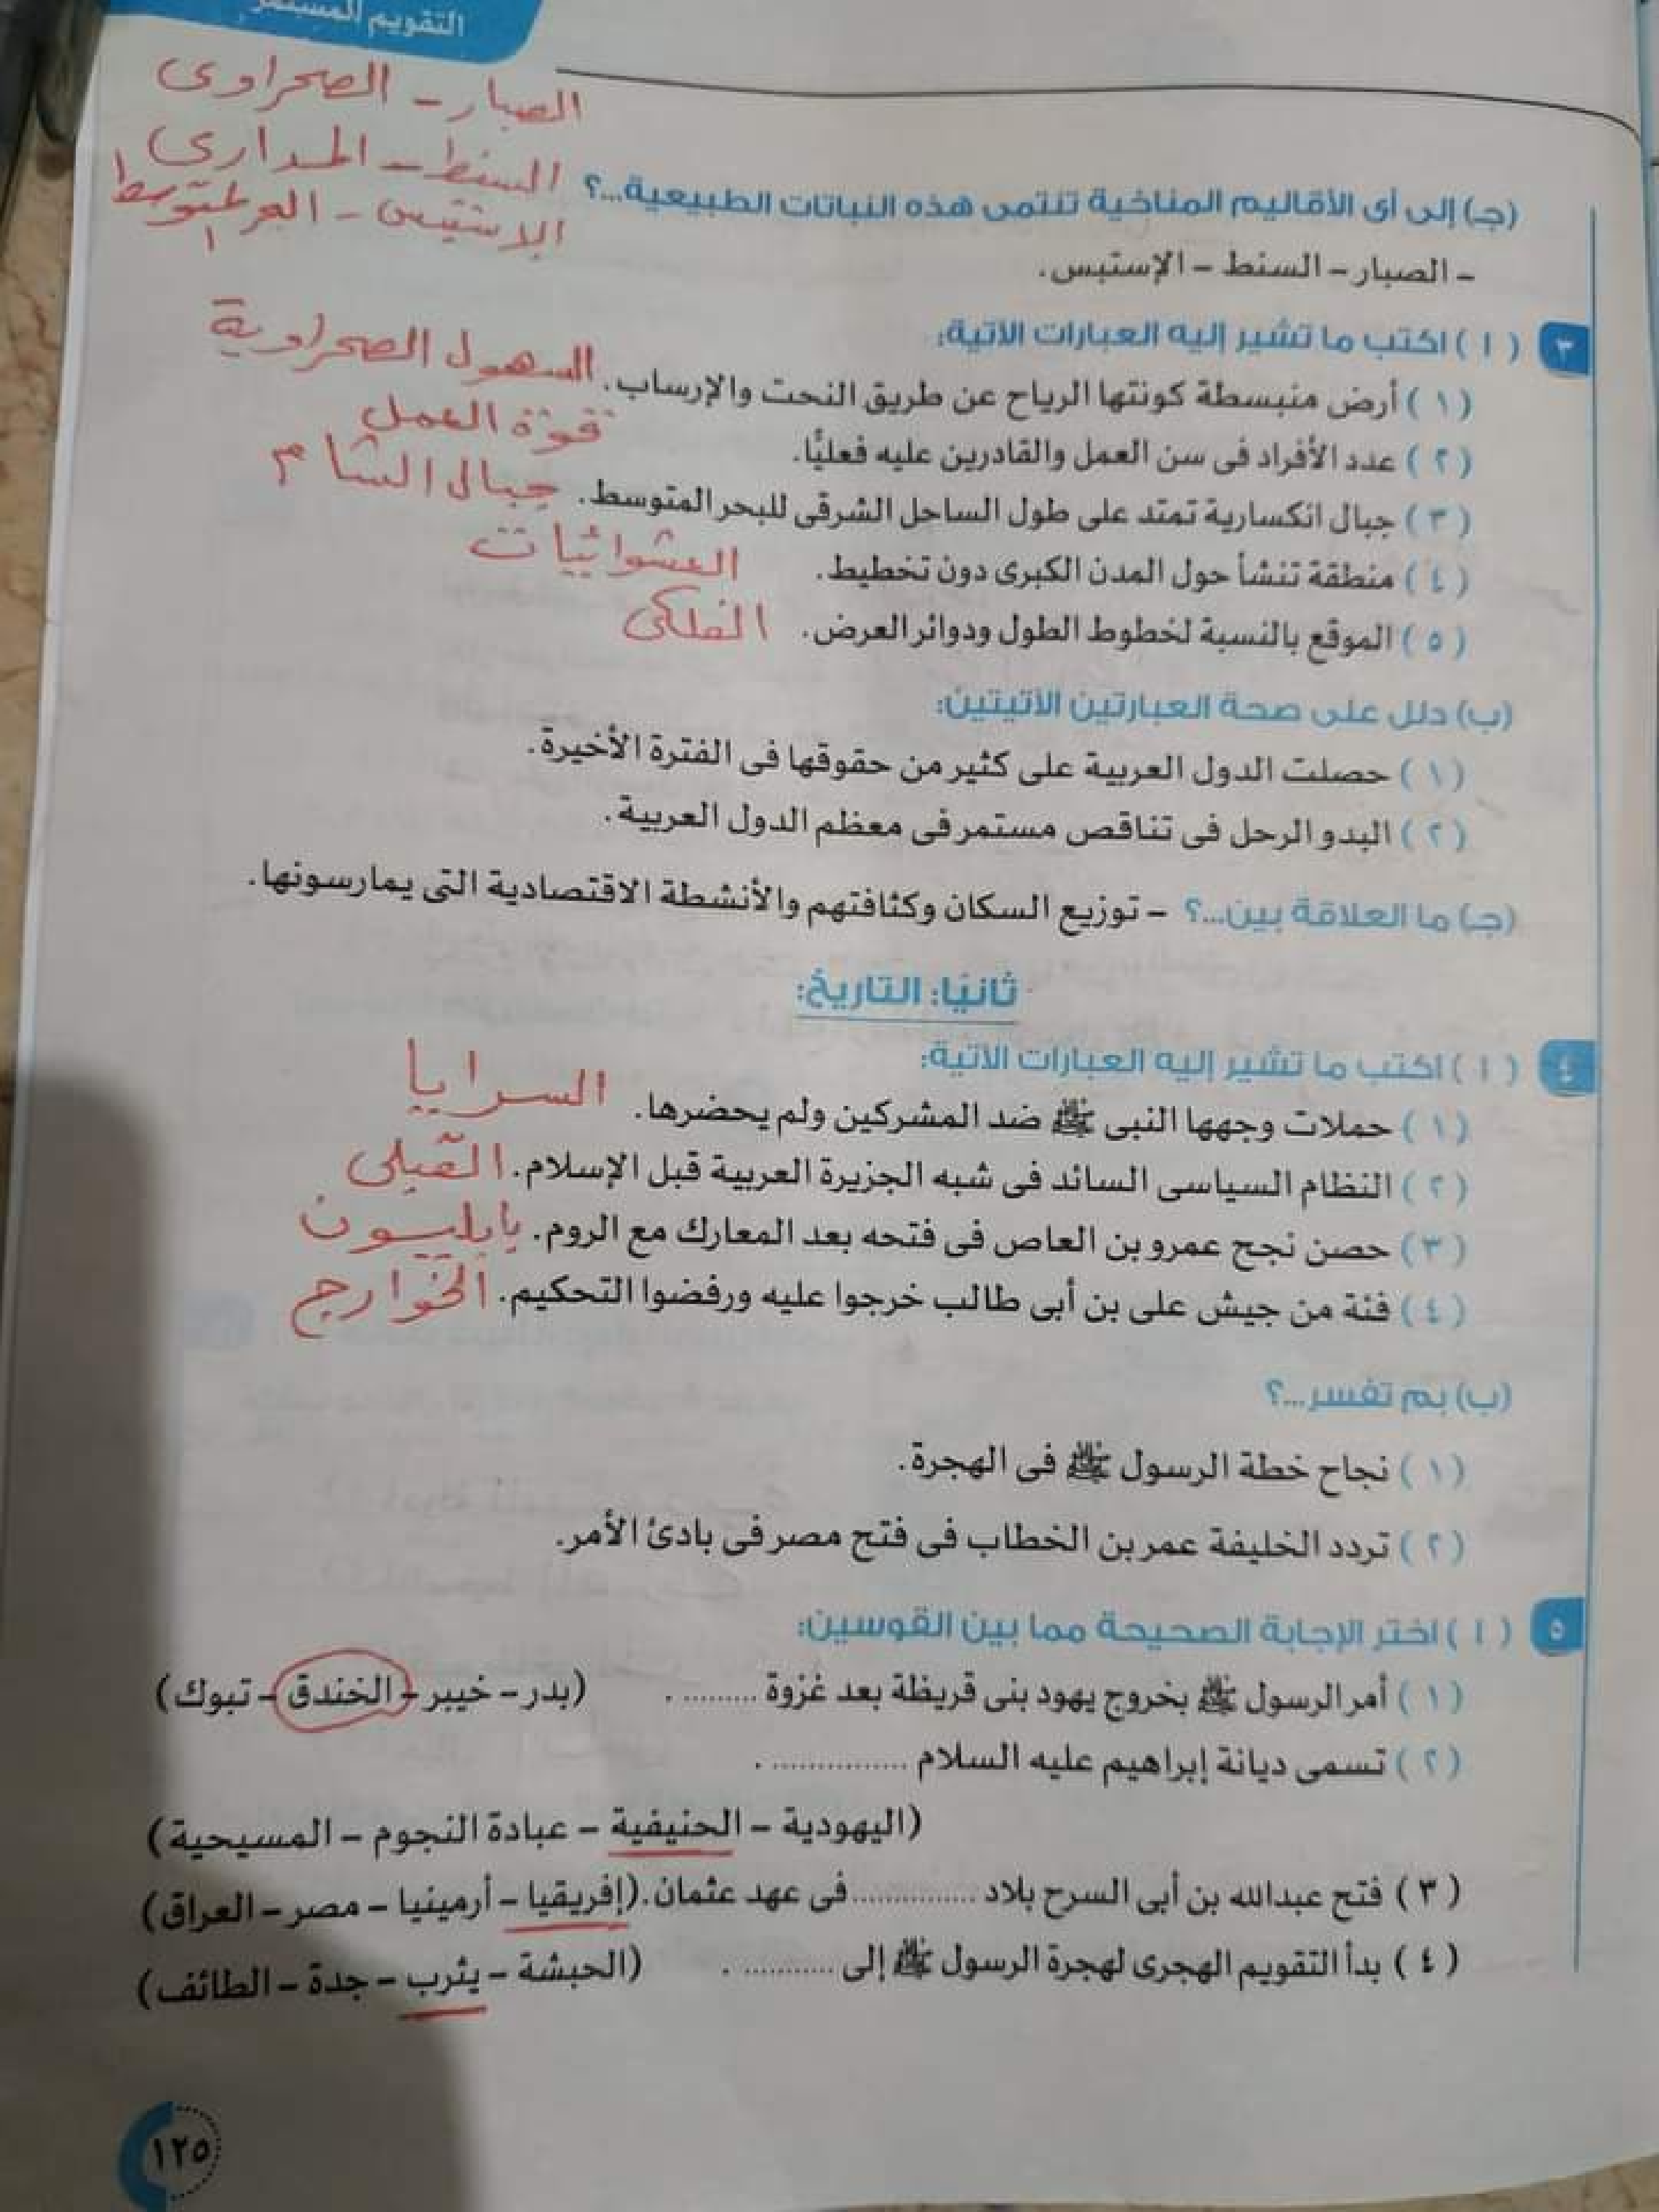 التقويم المستمر
الصبار - الصحراوى
السنط - المدارى
(جـ) إلى أى الأقاليم المناخية تنتمى هذه النباتات الطبيعية...؟
الاستبس - البحر المتوسط
- الصبار - السنط - الإستبس.
٣ ( ١ ) اكتب ما تشير إليه العبارات الآتية:
( ١ ) أرض منبسطة كونتها الرياح عن طريق النحت والإرساب. السهول الصحراوية
( ٢ ) عدد الأفراد فى سن العمل والقادرين عليه فعليًّا. قوة العمل
( ٣ ) جبال انكسارية تمتد على طول الساحل الشرقى للبحر المتوسط. جبال الشام
( ٤ ) منطقة تنشأ حول المدن الكبرى دون تخطيط. العشوائيات
( ٥ ) الموقع بالنسبة لخطوط الطول ودوائر العرض. الفلكى
(ب) دلل على صحة العبارتين الآتيتين:
( ١ ) حصلت الدول العربية على كثير من حقوقها فى الفترة الأخيرة.
( ٢ ) البدو الرحل فى تناقص مستمر فى معظم الدول العربية.
(جـ) ما العلاقة بين...؟ - توزيع السكان وكثافتهم والأنشطة الاقتصادية التى يمارسونها.
ثانيًا: التاريخ:
٤ ( ١ ) اكتب ما تشير إليه العبارات الآتية:
( ١ ) حملات وجهها النبى ﷺ ضد المشركين ولم يحضرها. السرايا
( ٢ ) النظام السياسى السائد فى شبه الجزيرة العربية قبل الإسلام. القبلى
( ٣ ) حصن نجح عمرو بن العاص فى فتحه بعد المعارك مع الروم. بابليون
( ٤ ) فئة من جيش على بن أبى طالب خرجوا عليه ورفضوا التحكيم. الخوارج
(ب) بم تفسر...؟
( ١ ) نجاح خطة الرسول ﷺ فى الهجرة.
( ٢ ) تردد الخليفة عمر بن الخطاب فى فتح مصر فى بادئ الأمر.
٥ ( ١ ) اختر الإجابة الصحيحة مما بين القوسين:
( ١ ) أمر الرسول ﷺ بخروج يهود بنى قريظة بعد غزوة .......... . (بدر - خيبر - الخندق - تبوك)
( ٢ ) تسمى ديانة إبراهيم عليه السلام ................ .
(اليهودية - الحنيفية - عبادة النجوم - المسيحية)
( ٣ ) فتح عبدالله بن أبى السرح بلاد ............... فى عهد عثمان. (إفريقيا - أرمينيا - مصر - العراق)
( ٤ ) بدأ التقويم الهجرى لهجرة الرسول ﷺ إلى ........... . (الحبشة - يثرب - جدة - الطائف)
١٢٥